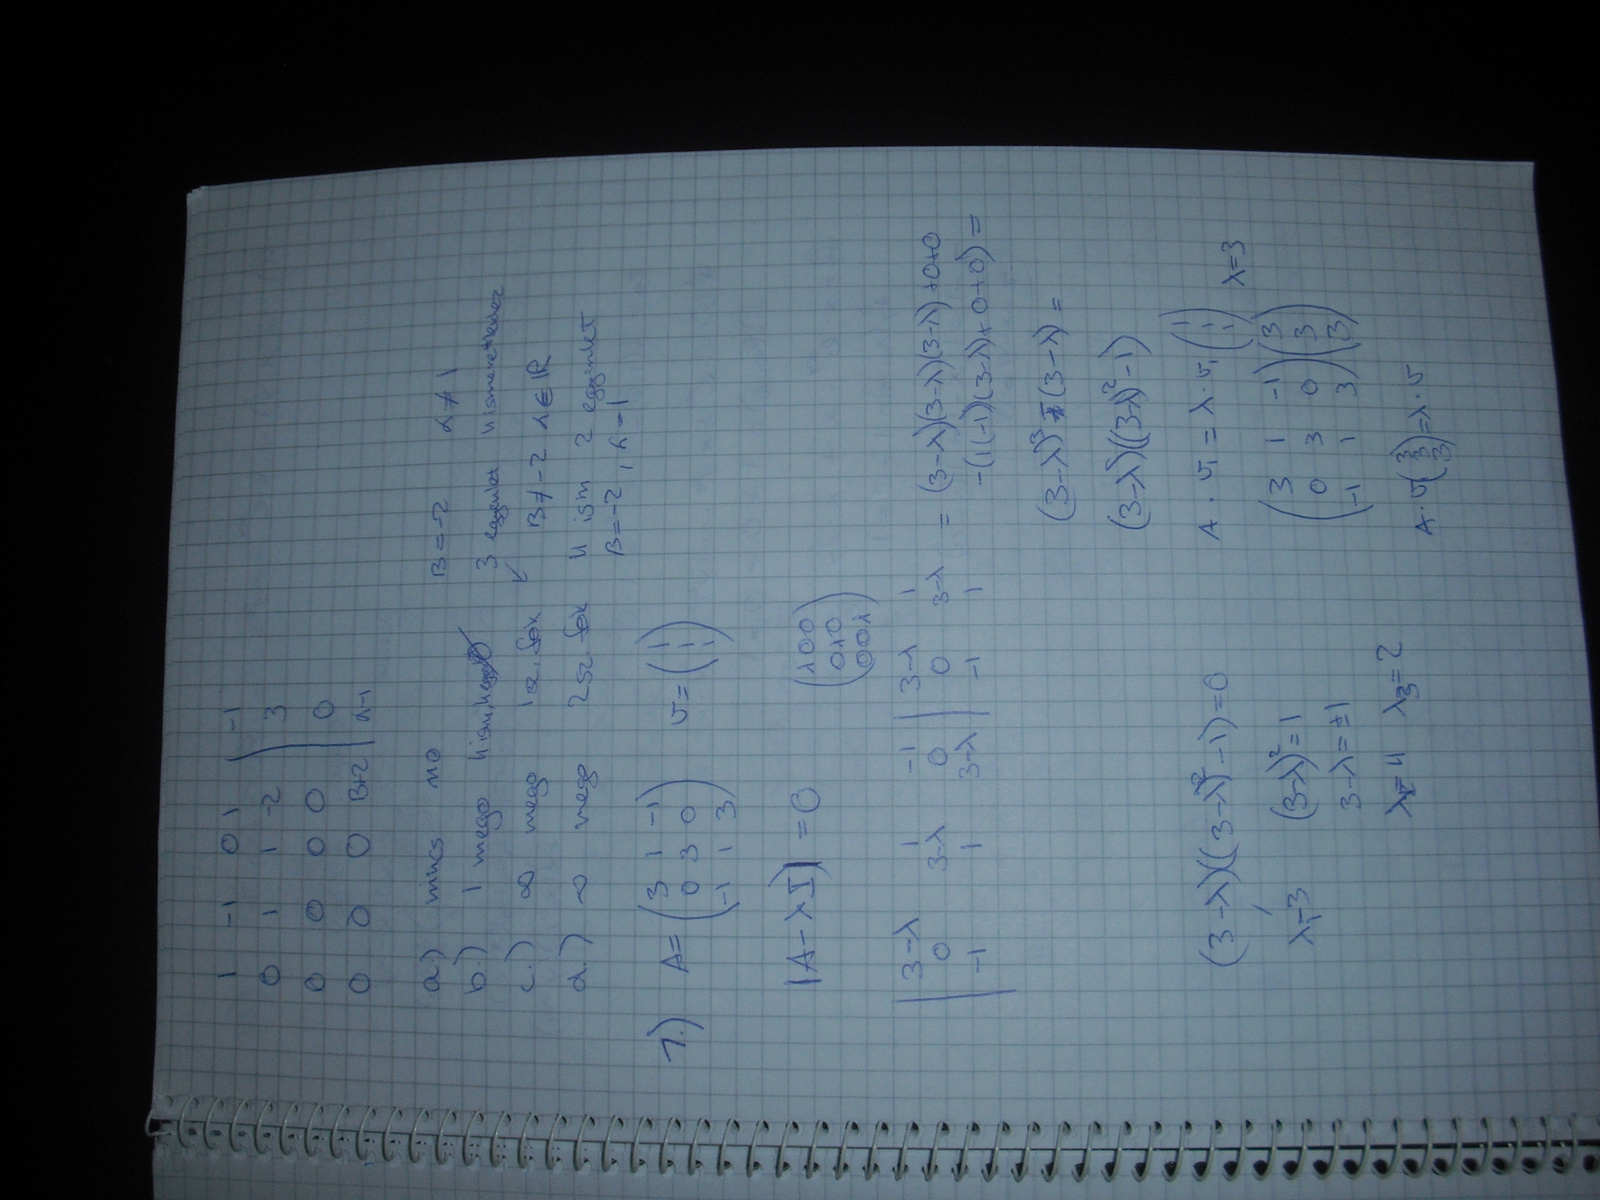 1 -1 0 1 | -1
0 1 1 -2 | 3
0 0 0 0 | 0
0 0 0 B+2 | α-1
a.) nincs mo B=-2 α≠1
b.) 1 mego 4 ism, 3 egyenlet 4 ismeretlenes
c.) ∞ mego 1 sz. fok B≠-2 α∈ℝ
d.) ∞ mego 2 sz fok 4 ism 2 egyenlet
B=-2, α=1
7.) A= (3 1 -1
0 3 0
-1 1 3) v= (1
1
1)
|A-λI|=0 (λ00
0λ0
00λ)
|3-λ 1 -1 | 3-λ 1
0 3-λ 0 | 0 3-λ
-1 1 3-λ | -1 1
= (3-λ)(3-λ)(3-λ)+0+0
-(1(-1)(3-λ)+0+0)=
(3-λ)³ - (3-λ)=
(3-λ)((3-λ)²-1)
(3-λ)((3-λ)²-1)=0
λ₁=3 (3-λ)²=1
3-λ=±1
λ₂=4 λ₃=2
A·v₁=λ·v₁ (1
1
1) λ=3
(3 1 -1
0 3 0
-1 1 3) (3
3
3)
A·v₁(3
3
3)=λ·v